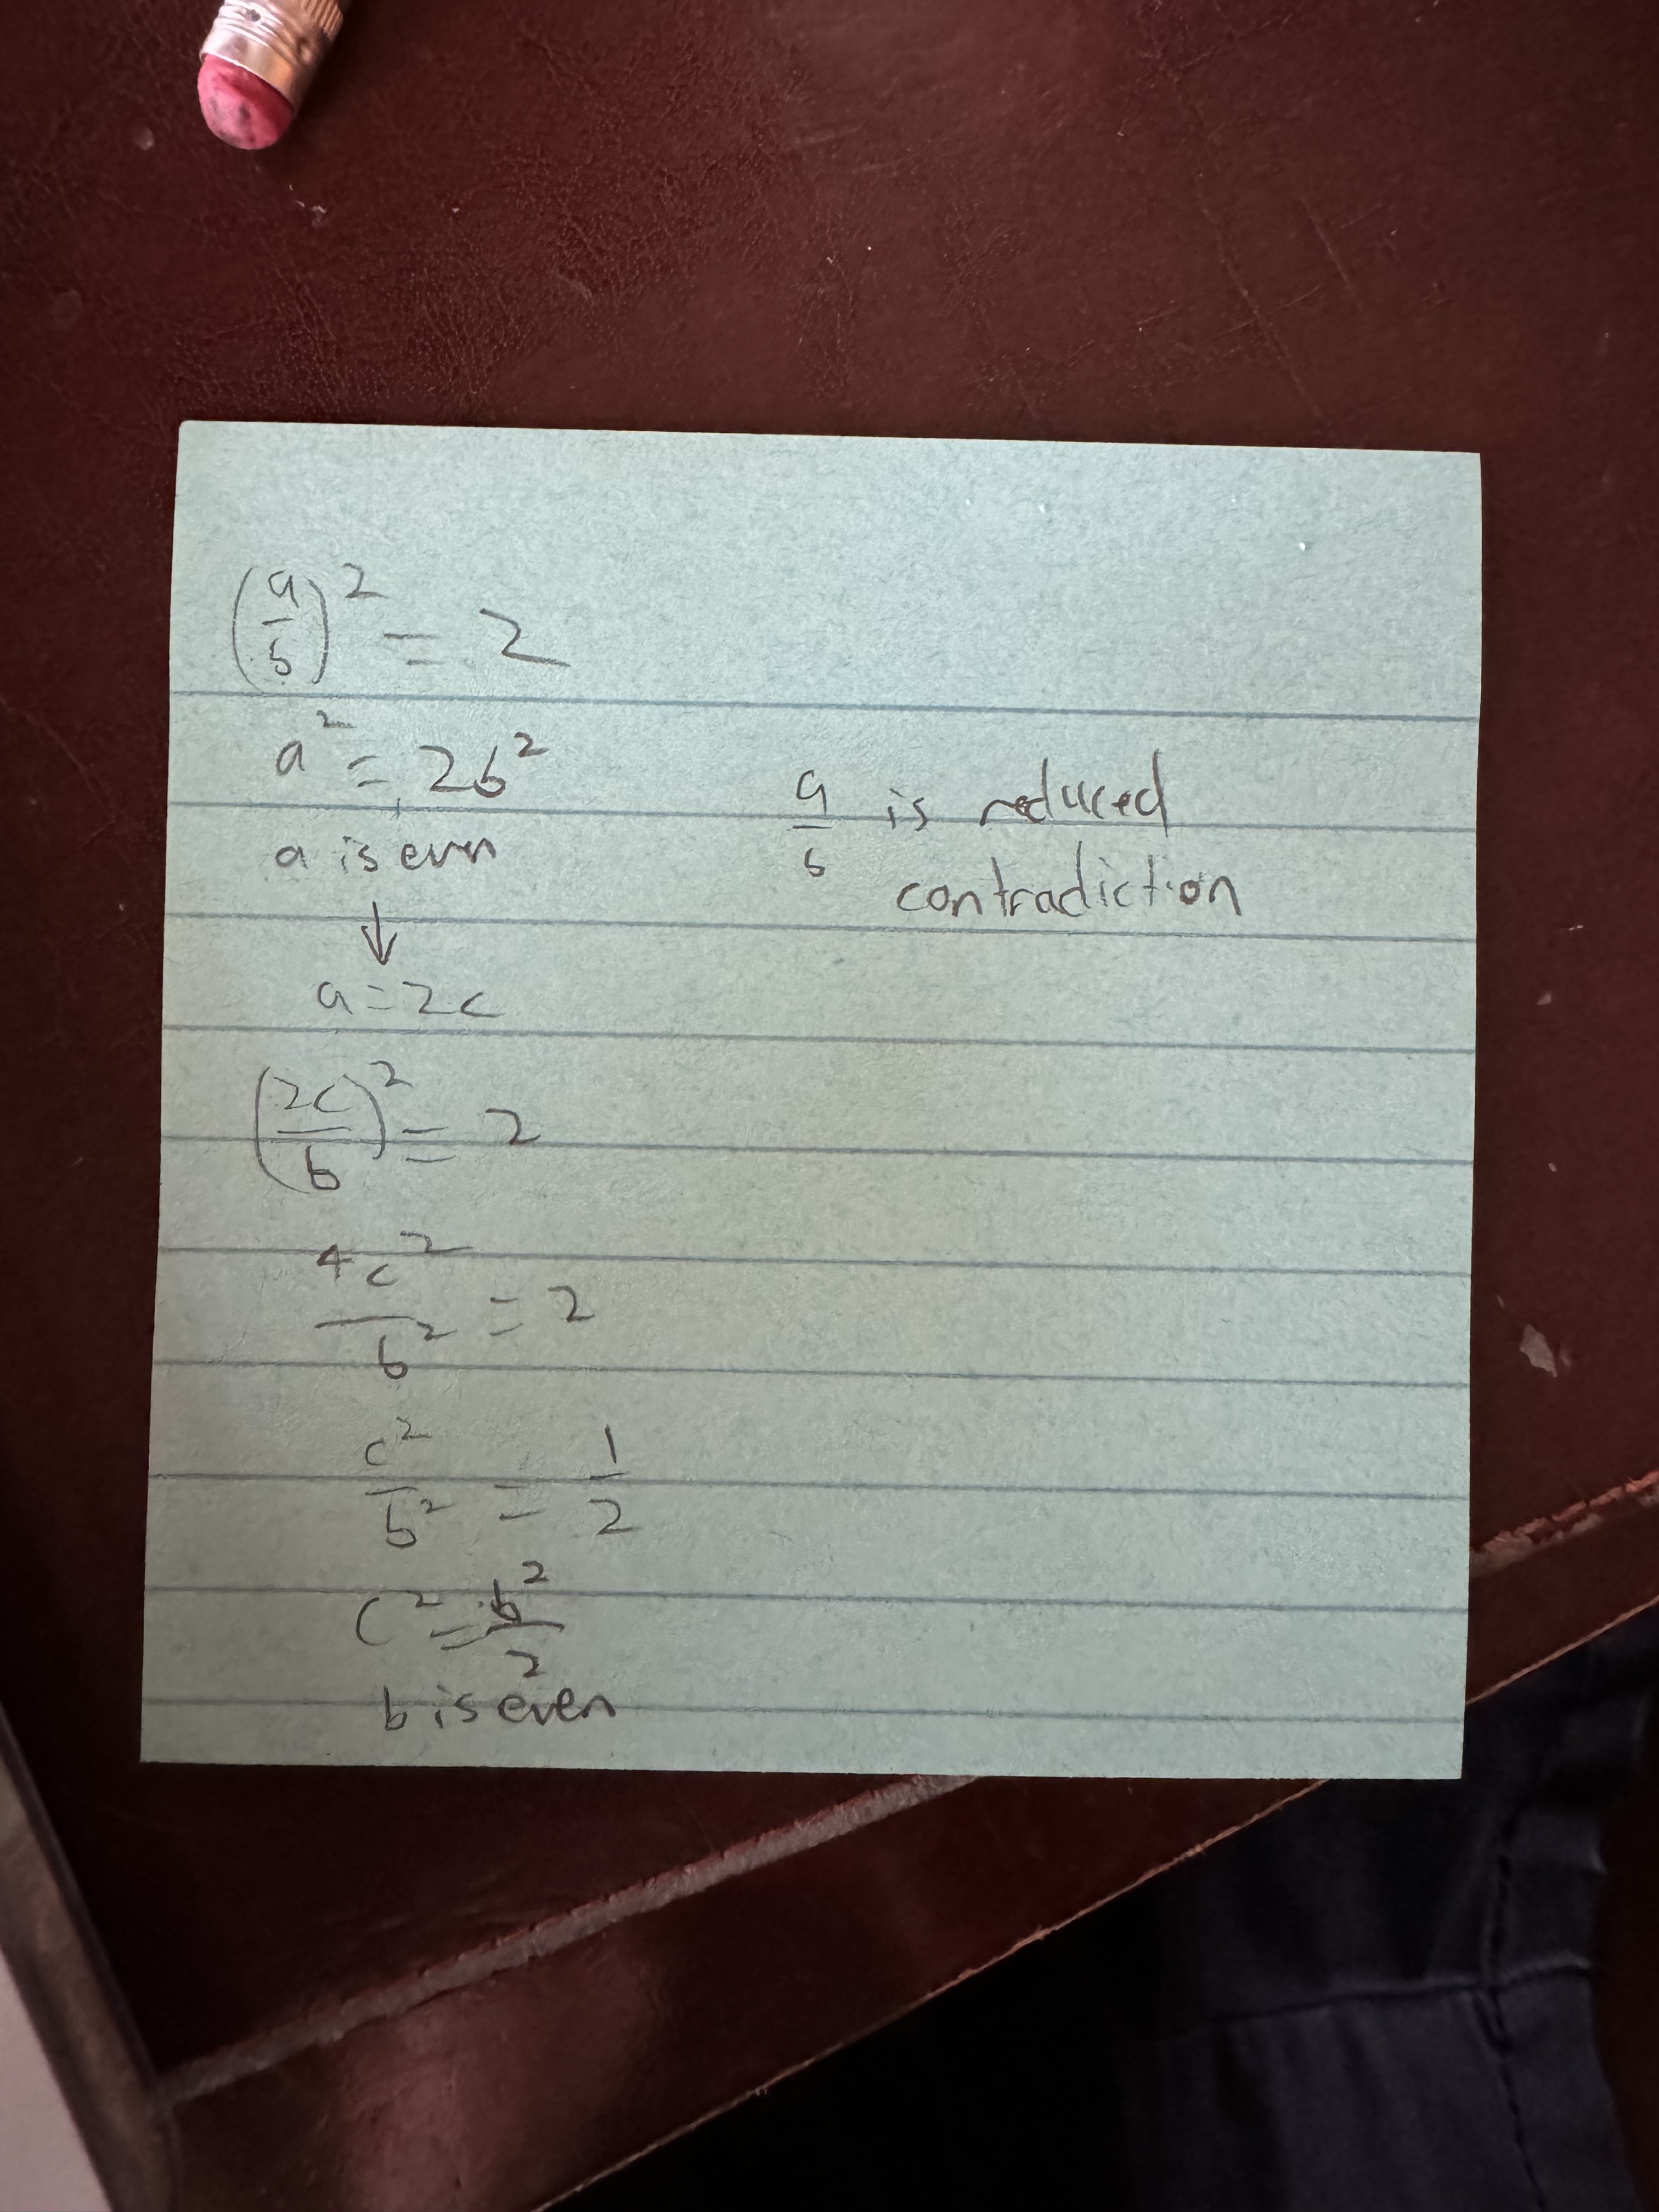 (a/b)² = 2
a² = 2b²
a is even
↓
a = 2c
(2c/b)² = 2
4c²/b² = 2
c²/b² = 1/2
c² = b²/2
b is even
a/b is reduced
contradiction